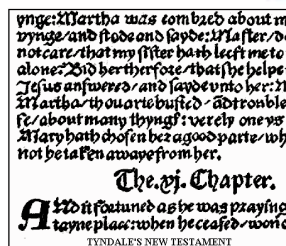 ynge: Martha was combred about m
vynge/and stode and sayde: Master/do
not care/that my sister hath leeft me to
alone? Bid her therfore/that she helpe
Jesus answered/and sayde vnto her: M
Martha/thou arte busied/ ãd trouble
fe/about many thyngꝭ: verely one ys
Mary hath chosen her a good parte/wh
not be taken awaye from her.
The .xj. Chapter.
And it fortuned as he was prayinge
tayne place: when he ceased/won o
TYNDALE'S NEW TESTAMENT